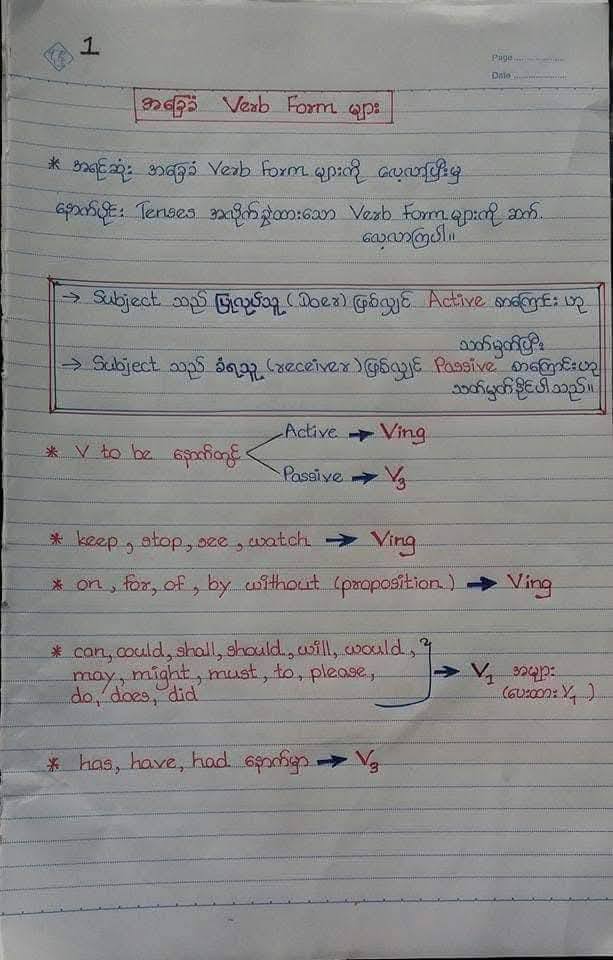 1
Page
Date
အခြေခံ Verb Form များ
* အရင်ဆုံး အခြေခံ Verb Form များကို လေ့လာပြီးမှ
နောက်ပိုင်း Tenses အလိုက်ခွဲထားသော Verb Form များကို ဆက်
လေ့လာကြပါ။
→ Subject သည် ပြုလုပ်သူ (Doer) ဖြစ်လျှင် Active စာကြောင်း ဟု
သတ်မှတ်ပြီး
→ Subject သည် ခံရသူ (receiver) ဖြစ်လျှင် Passive စာကြောင်းဟု
သတ်မှတ်နိုင်ပါသည်။
Active → Ving
* V to be နောက်တွင်
Passive → V3
* keep, stop, see, watch → Ving
* on, for, of, by without (proposition) → Ving
* can, could, shall, should, will, would,
may, might, must, to, please, → V1 အများ
do, does, did (ပေးထား V1)
* has, have, had နောက်မှာ → V3